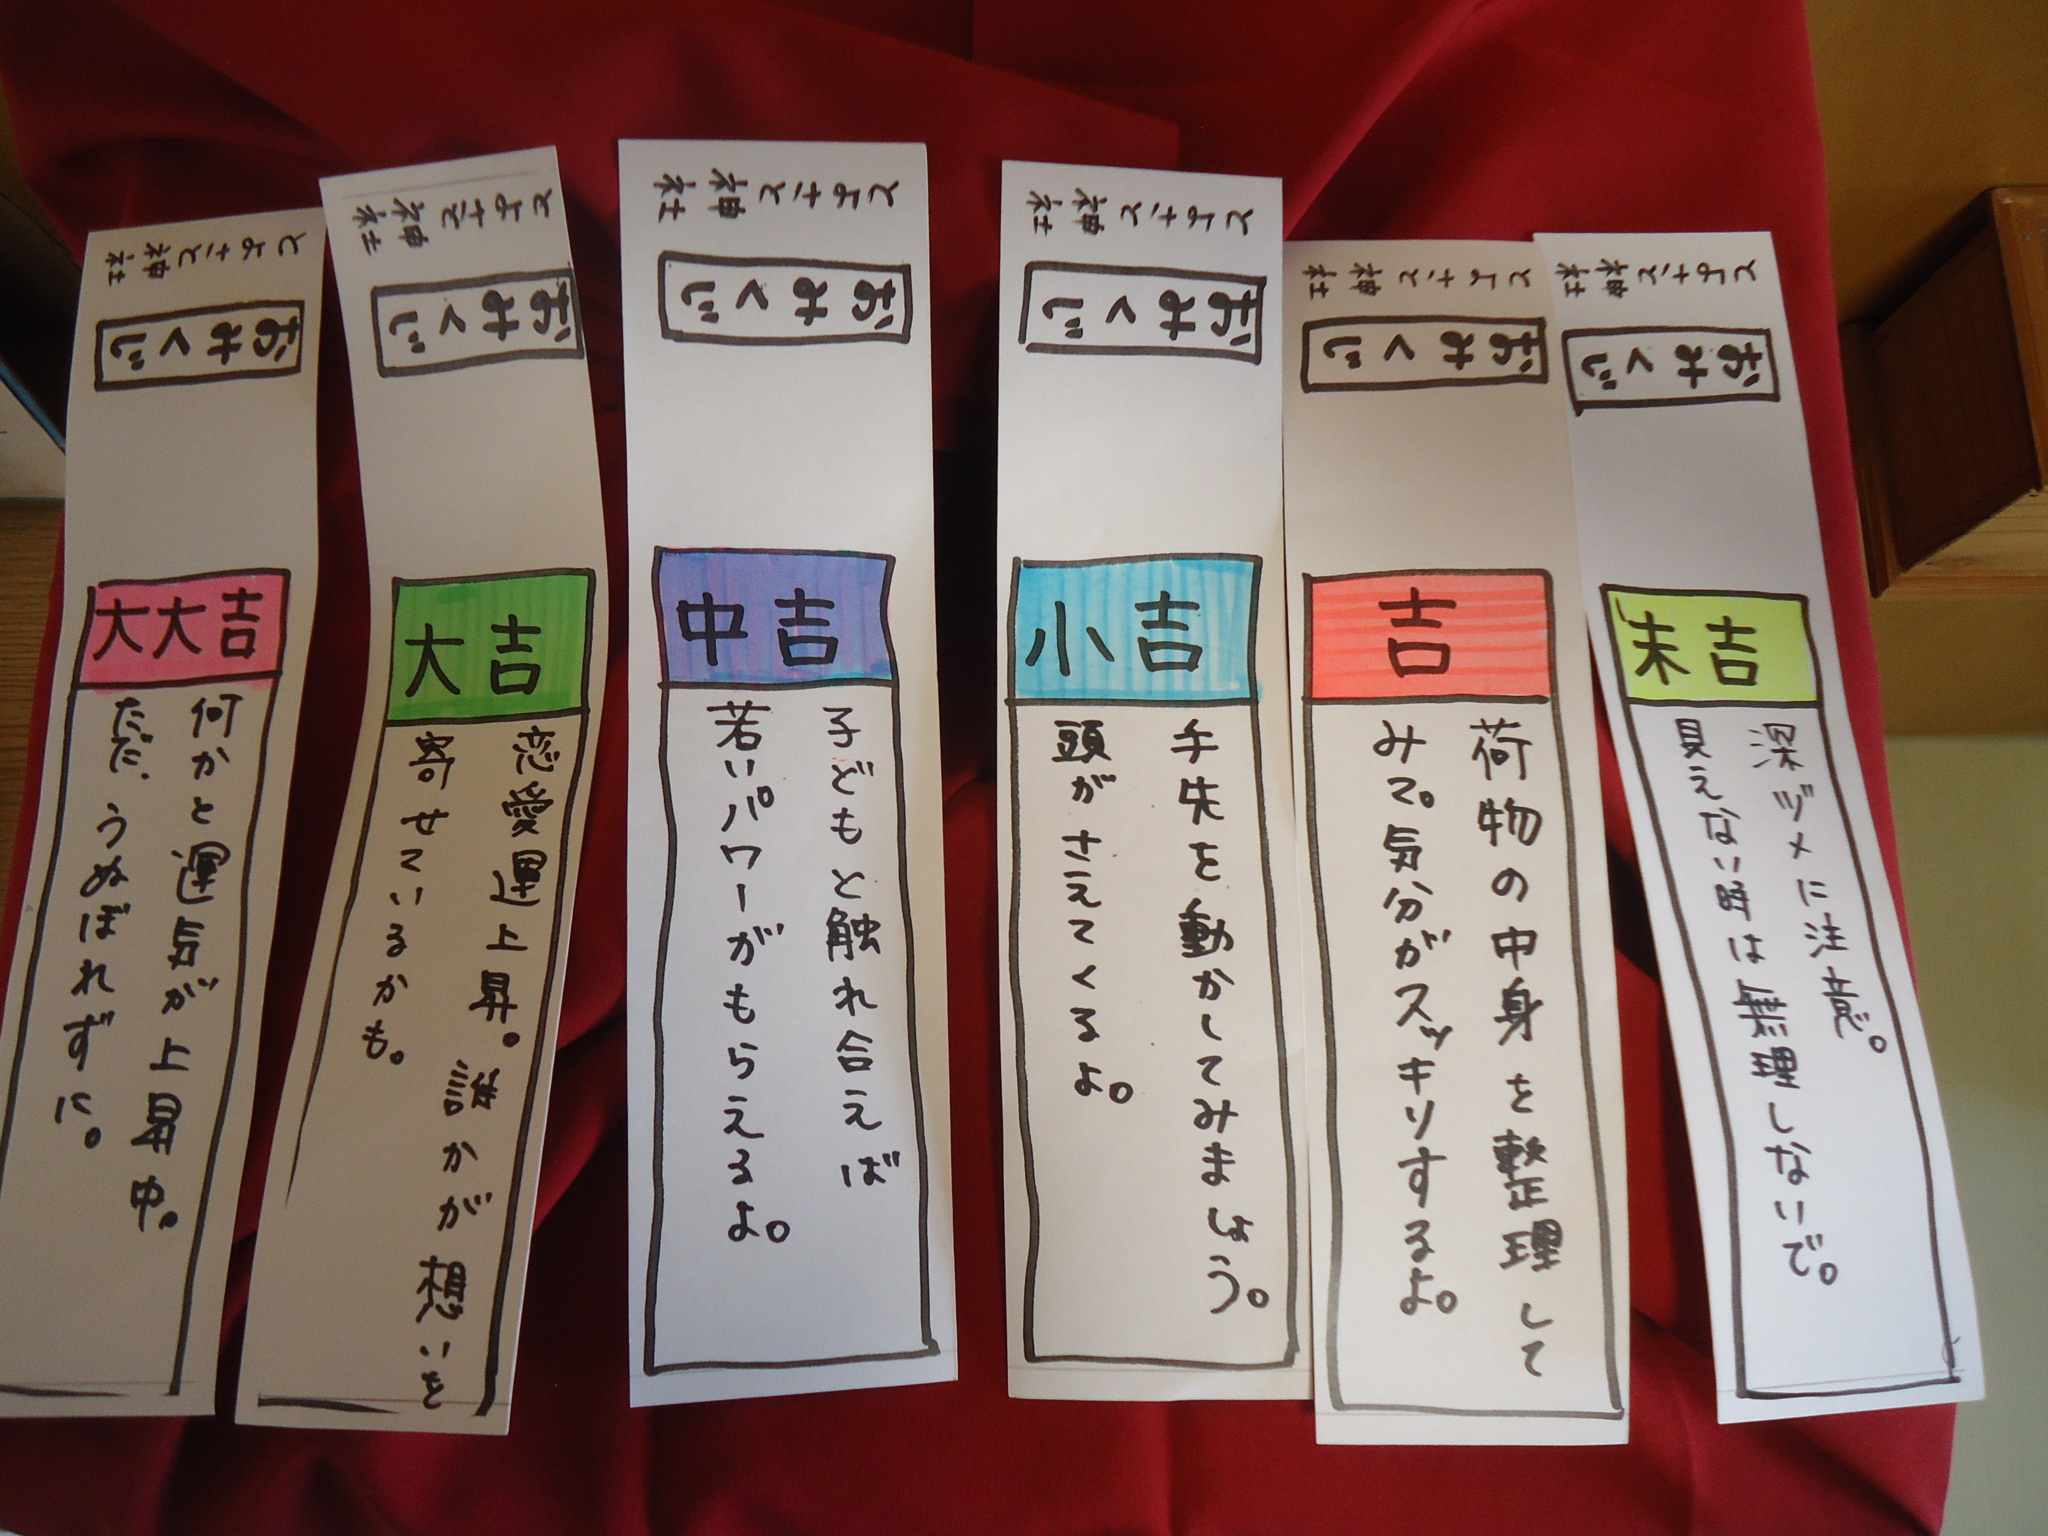 とよさと神社
おみくじ
大大吉
何かと運気が上昇中。
ただ、うぬぼれずに。
とよさと神社
おみくじ
大吉
恋愛運上昇。誰かが想いを
寄せているかも。
とよさと神社
おみくじ
中吉
子どもと触れ合えば
若いパワーがもらえるよ。
とよさと神社
おみくじ
小吉
手先を動かしてみましょう。
頭がさえてくるよ。
とよさと神社
おみくじ
吉
荷物の中身を整理して
みて。気分がスッキリするよ。
とよさと神社
おみくじ
末吉
深ヅメに注意。
見えない時は無理しないで。